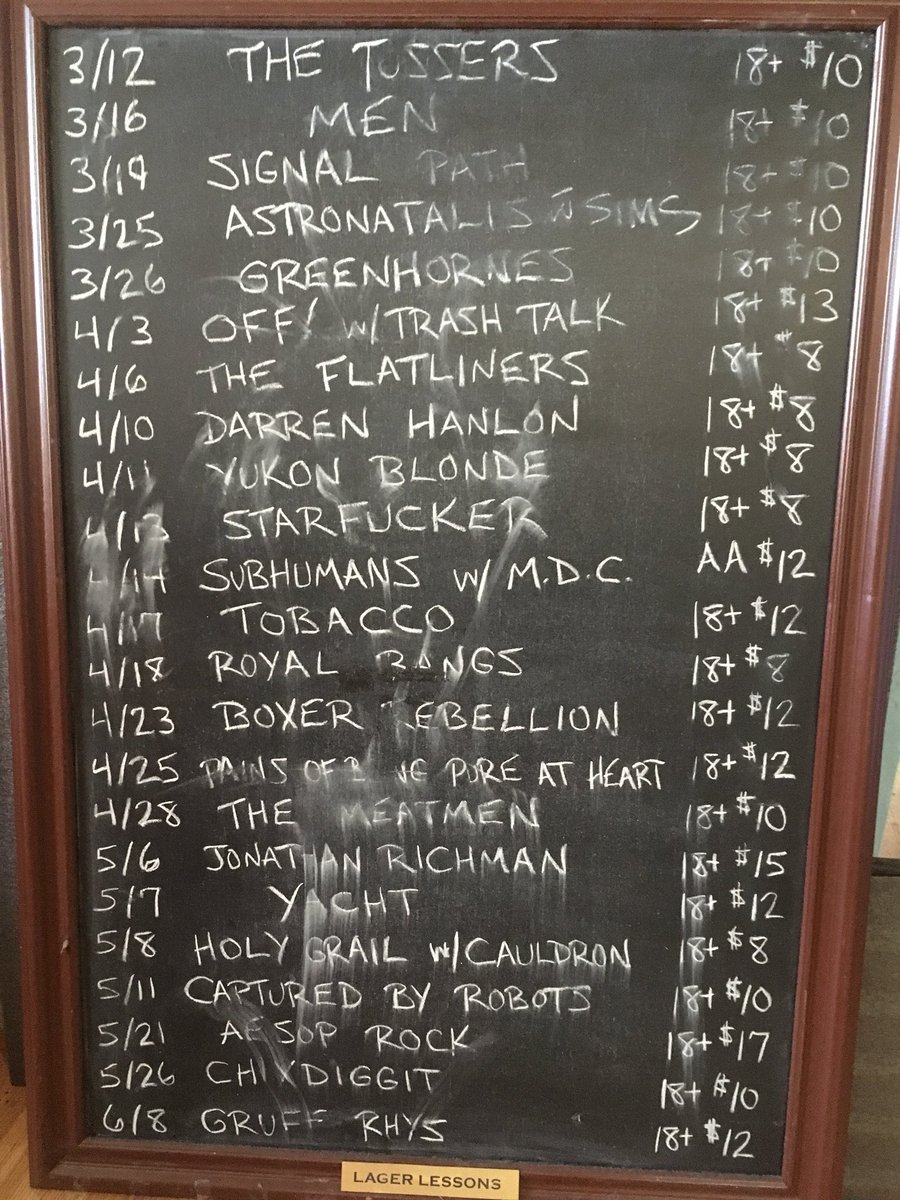 3/12 THE TOSSERS 18+ $10
3/16 MEN 18+ $10
3/19 SIGNAL PATH 18+ $10
3/25 ASTRONATALIS W SIMS 18+ $10
3/26 GREENHORNES 18+ $10
4/3 OFF! W/TRASH TALK 18+ $13
4/6 THE FLATLINERS 18+ $8
4/10 DARREN HANLON 18+ $8
4/11 YUKON BLONDE 18+ $8
4/13 STARFUCKER 18+ $8
4/14 SUBHUMANS W/ M.D.C. AA $12
4/17 TOBACCO 18+ $12
4/18 ROYAL BANGS 18+ $8
4/23 BOXER REBELLION 18+ $12
4/25 PAINS OF BEING PURE AT HEART 18+ $12
4/28 THE MEATMEN 18+ $10
5/6 JONATHAN RICHMAN 18+ $15
5/7 YACHT 18+ $12
5/8 HOLY GRAIL W/CAULDRON 18+ $8
5/11 CAPTURED BY ROBOTS 18+ $10
5/21 AESOP ROCK 18+ $17
5/26 CHIXDIGGIT 18+ $10
6/8 GRUFF RHYS 18+ $12
LAGER LESSONS